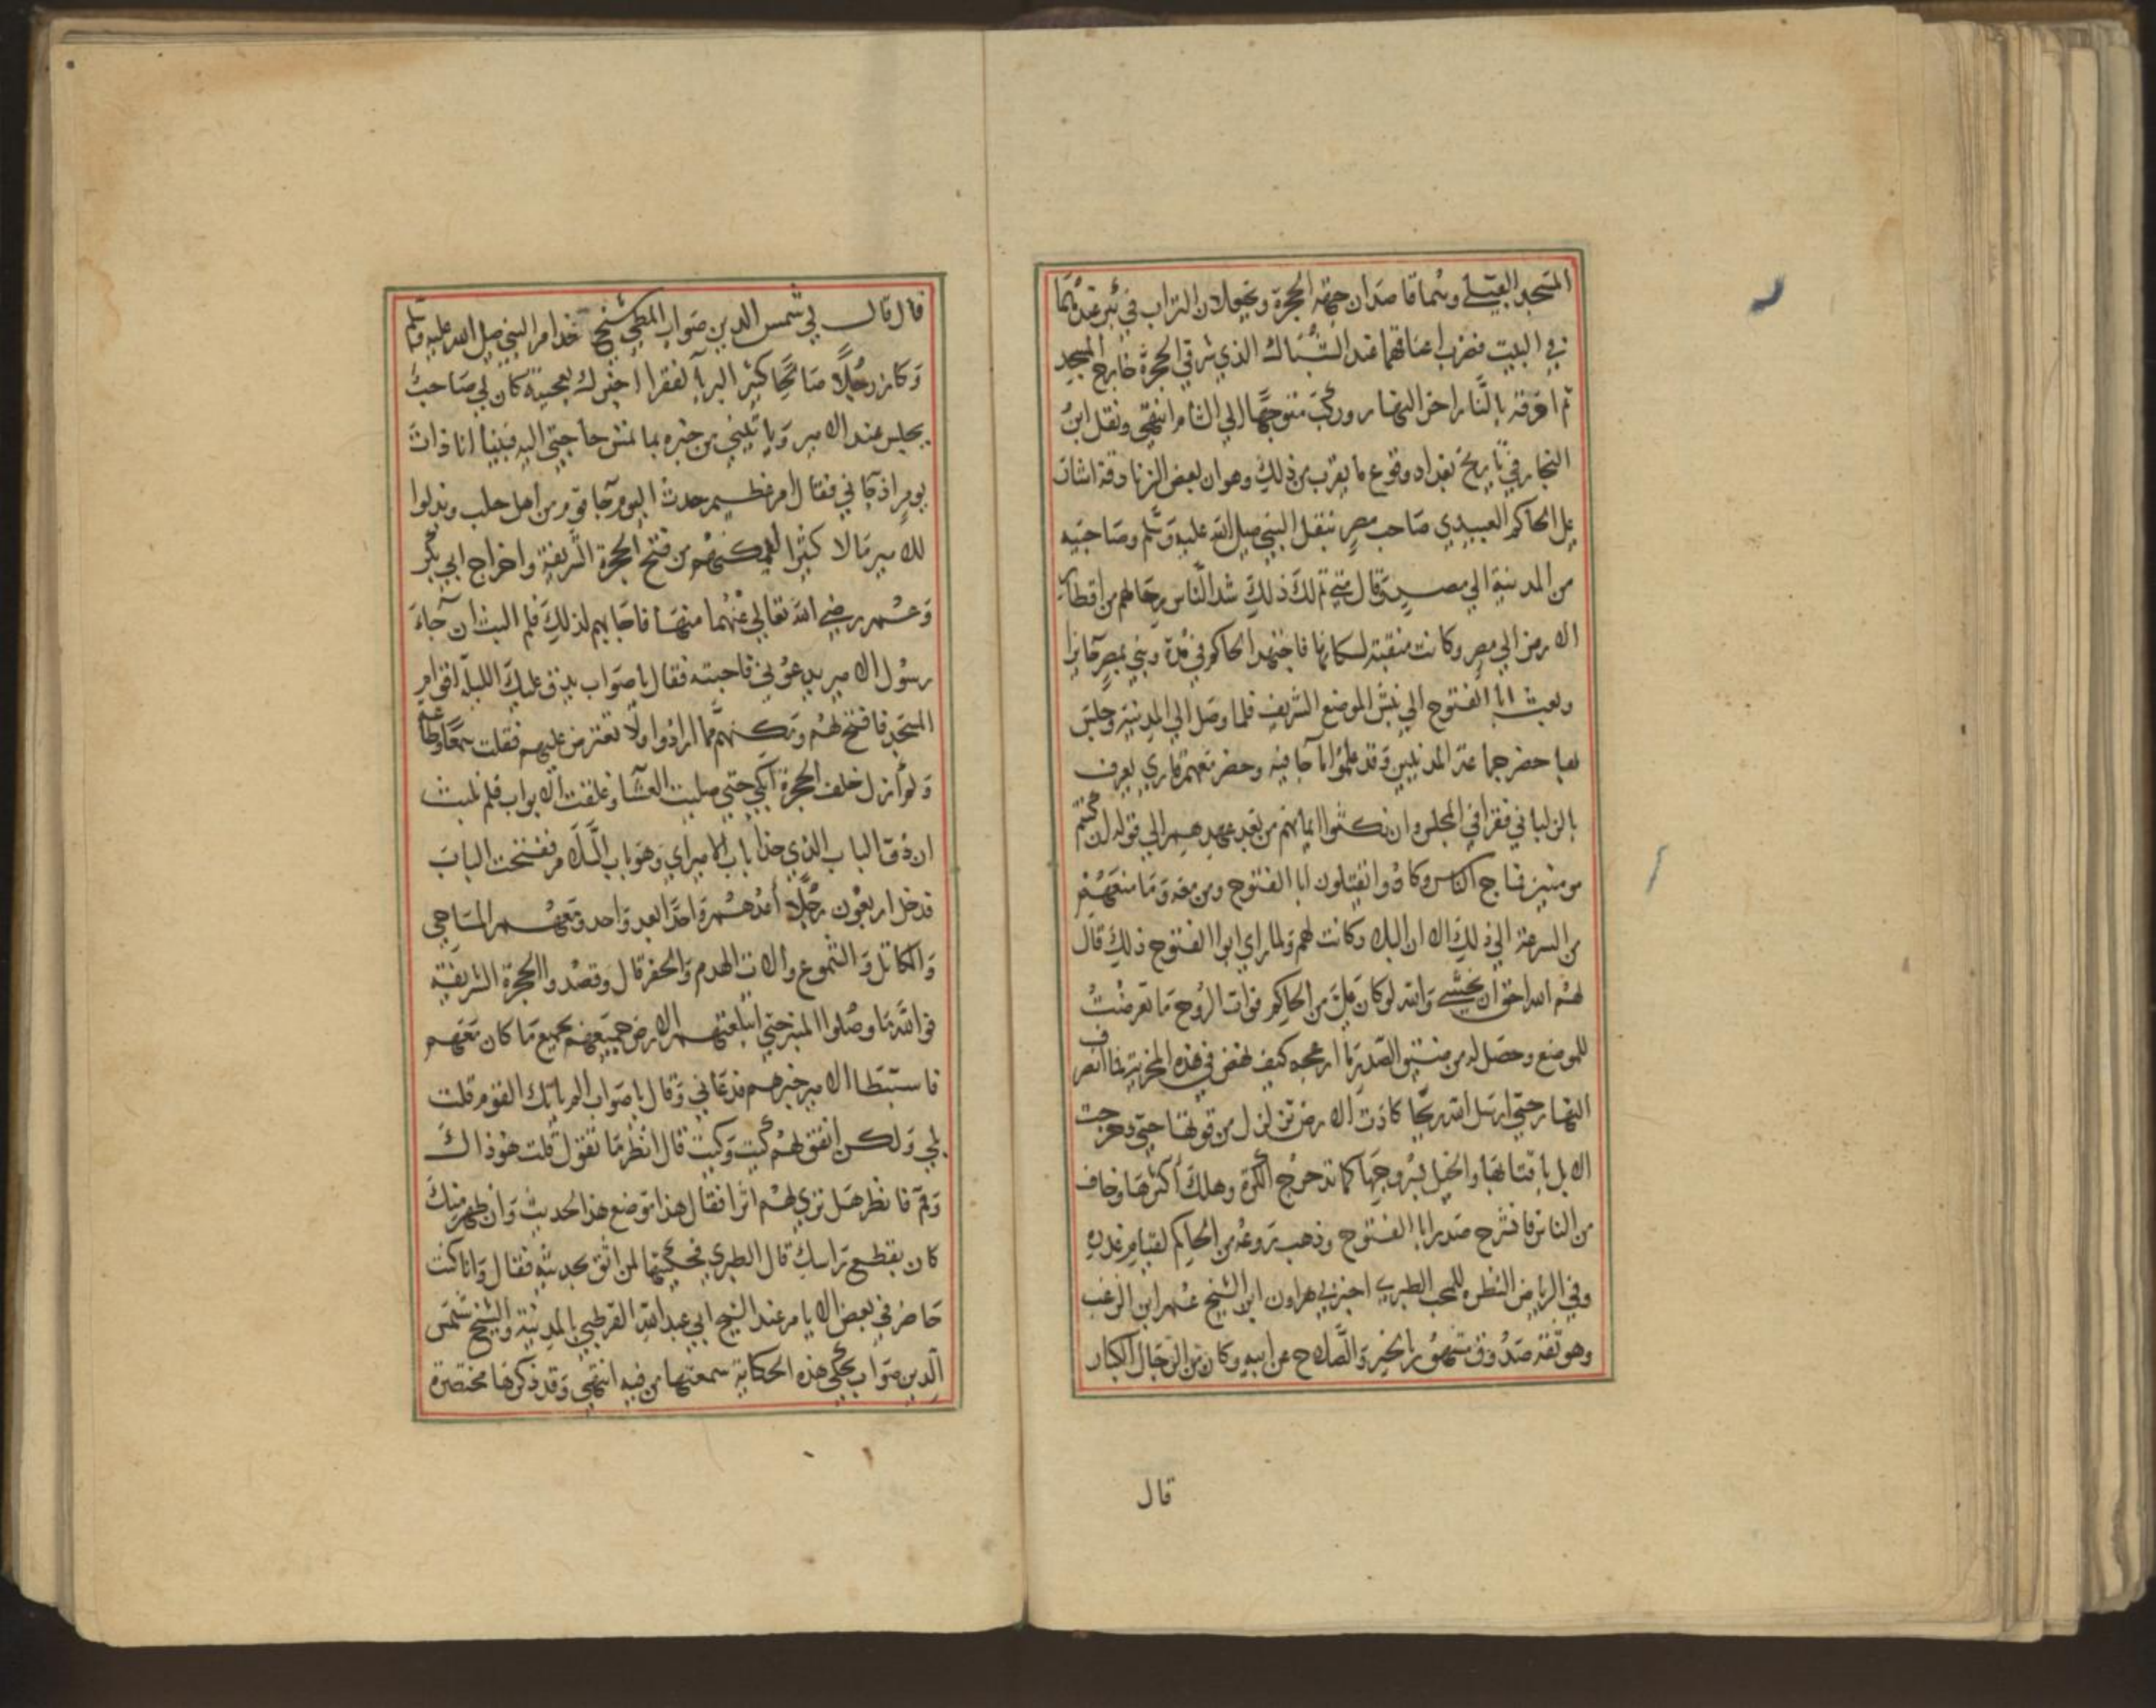 المسجد القبلي وهما قاصدان جهة الحجرة ويجعلان التراب في بئر عندهما
في البيت فضرب اعناقهما عند الشباك الذي شرقي الحجرة خارج المسجد
ثم احرقا بالنار اخر النهار وركب متوجها الي الشام انتهي ونقل ابن
النجار في تاريخ بغداد وقوع ما يقرب من ذلك وهو ان بعض الزنادقة اشار
علي الحاكم العبيدي صاحب مصر بنقل النبي صلي الله عليه وسلم وصاحبيه
من المدينة الي مصر وقال متي تم لك ذلك شد الناس رحالهم من اقطار
الارض الي مصر وكانت منقبة لسكانها فاجتهد الحاكم في مدة وبني بمصر حائزا
وبعث ابا الفتوح الي نبش الموضع الشريف فلما وصل الي المدينة وجلس
بها حضر جماعة المدنيين وقد علموا ما جا فيه وحضر معهم قاري يعرف
بالزلباني فقرا في المجلس وان نكثوا ايمانهم من بعد عهدهم الي قوله ان كنتم
مومنين فماج الناس وكادوا يقتلون ابا الفتوح ومن معه وما منعهم
من السرعة الي ذلك الا ان البلاد كانت لهم ولما راي ابوا الفتوح ذلك قال
لهم الله احق ان يخشي والله لو كان علي من الحاكم فوات الروح ما تعرضت
للموضع وحصل له من ضيق الصدر ما ازعجه كيف نهض في هذه المخزية فما انصرف
النهار حتي ارسل الله ريحا كادت الارض تزلزل من قوتها حتي دحرجت
الابل باقتابها والخيل بسروجها كما تدحرج الكرة وهلك اكثرها وخلق
من الناس فانشرح صدر ابا الفتوح وذهب روعه من الحاكم لقيام عذره
وفي الرياض النضره للمحب الطبري اخبرني هارون ابن الشيخ عمر ابن الزغب
وهو ثقة صدوق مشهور بالخير والصلاح عن ابيه وكان من الرجال الكبار
قال
قال قال لي شمس الدين صواب المطي شيخ خدام النبي صلي الله عليه وسلم
وكان رجلا صالحا كثير البر بالفقرا اخبرك بعجيبة كان لي صاحب
يجلس عند الامير وياتيني من خبره بما تمس حاجتي اليه فبينا انا ذات
يوم اذ جاني فقال امر عظيم حدث اليوم جا قوم من اهل حلب وبذلوا
للامير مالا كثيرا ليمكنهم من فتح الحجرة الشريفة واخراج ابي بكر
وعمر رضي الله تعالي عنهما منها فاجابهم لذلك فلم البث ان جاء
رسول الامير يدعوني فاجبته فقال يا صواب يدق عليك الليلة اقوام
المسجد فافتح لهم ومكنهم مما ارادوا ولا تعترض عليهم فقلت سمعا وطاعة
ولم ازل خلف الحجرة ابكي حتي صليت العشا وغلقت الابواب فلم نلبث
ان دق الباب الذي حذا باب الاميراي وهو باب السلام ففتحت الباب
فدخل اربعون رجلا اعدهم واحدا بعد واحد ومعهم المساحي
والمكاتل والشموع والات الهدم والحفر قال وقصدوا الحجرة الشريفة
فوالله ما وصلوا المنبر حتي ابتلعتهم الارض جميعهم بجميع ما كان معهم
فاستبطا الامير خبرهم فدعاني وقال يا صواب الم ياتك القوم قلت
بلي ولكن اتفق لهم كيت وكيت قال انظر ما تقول قلت هو ذاك
وقم فانظر هل تري لهم اثرا فقال هذا موضع هذا الحديث وان ظهر منك
كان بقطع راسك قال الطبري فحكيتها لمن اثق بحديثه فقال وانا كنت
حاضر في بعض الايام عند الشيخ ابي عبد الله القرطبي بالمدينة والشيخ شمس
الدين صواب يحكي هذه الحكاية سمعتها من فيه انتهي وقد ذكرها مختصرة